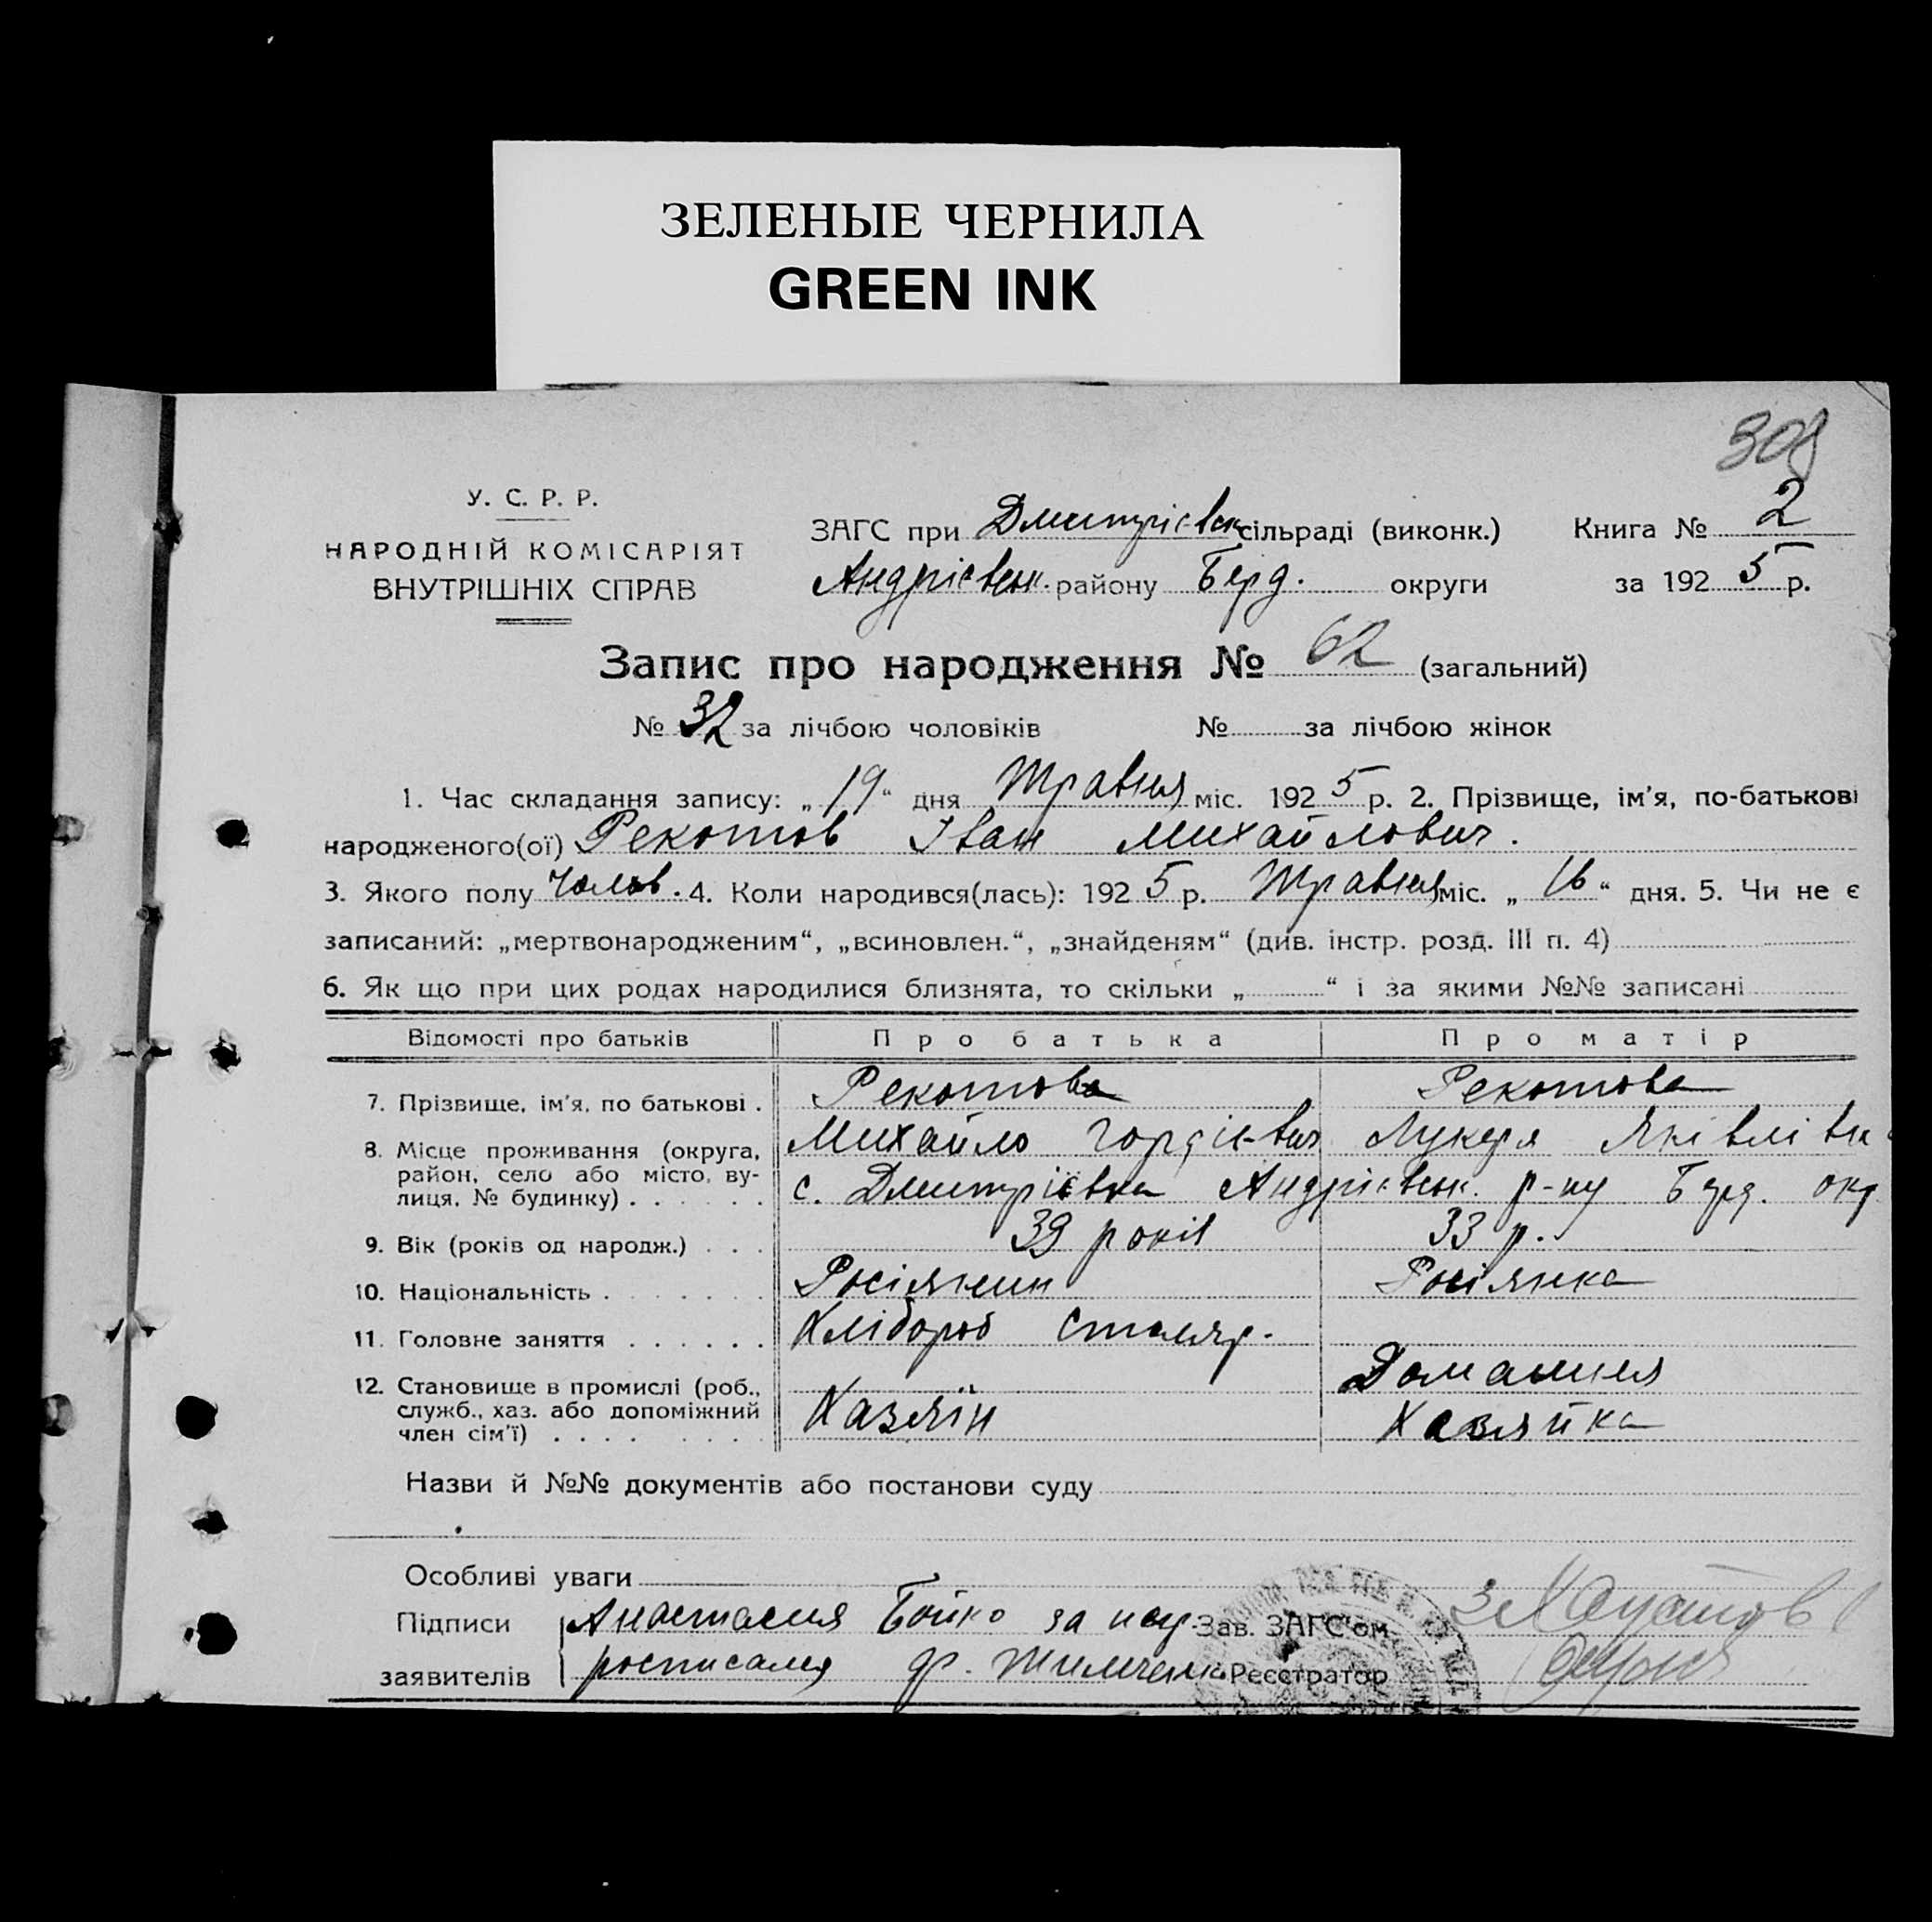 ЗЕЛЕНЫЕ ЧЕРНИЛА
GREEN INK
У. С. Р. Р.
НАРОДНІЙ КОМІСАРІЯТ
ВНУТРІШНІХ СПРАВ
ЗАГС при Дмитрієвск сільраді (виконк.) Книга № 2
Андрієвськ. району Берд. округи за 1925 р.
Запис про народження № 62 (загальний)
№ 32 за лічбою чоловіків № за лічбою жінок
1. Час складання запису: „19“ дня Травня міс. 1925 р. 2. Прізвище, ім’я, по-батькові
народженого(ої) Рекотов Іван Михайлович.
3. Якого полу Чолов. 4. Коли народився(лась): 1925 р. Травня міс. „16“ дня. 5. Чи не є
записаний: „мертвонародженим“, „всиновлен.“, „знайденям“ (див. інстр. розд. III п. 4)
6. Як що при цих родах народилися близнята, то скільки „ “ і за якими №№ записані
Відомості про батьків Про батька Про матір
7. Прізвище, ім’я, по батькові . Рекотова Рекотова
Михайло Гордієвич Лукеря Яківлівна
8. Місце проживання (округа,
район, село або місто, ву-
лиця, № будинку) . . . . . . с. Дмитрієвка Андрієвськ. р-ну Берд. окр.
9. Вік (років од народж.) . . . 39 років 33 р.
10. Національність . . . . . . . Росіянин Росіянка
11. Головне заняття . . . . . . Хлібороб столяр.
12. Становище в промислі (роб.,
служб., хаз. або допоміжний
член сім’ї) . . . . . . . . Хазяїн Домашня
Хазяйка
Назви й №№ документів або постанови суду
Особливі уваги
Підписи Анастасия Бойко за неу Зав. ЗАГС’ом
заявителів росписался Ф. Реєстратор